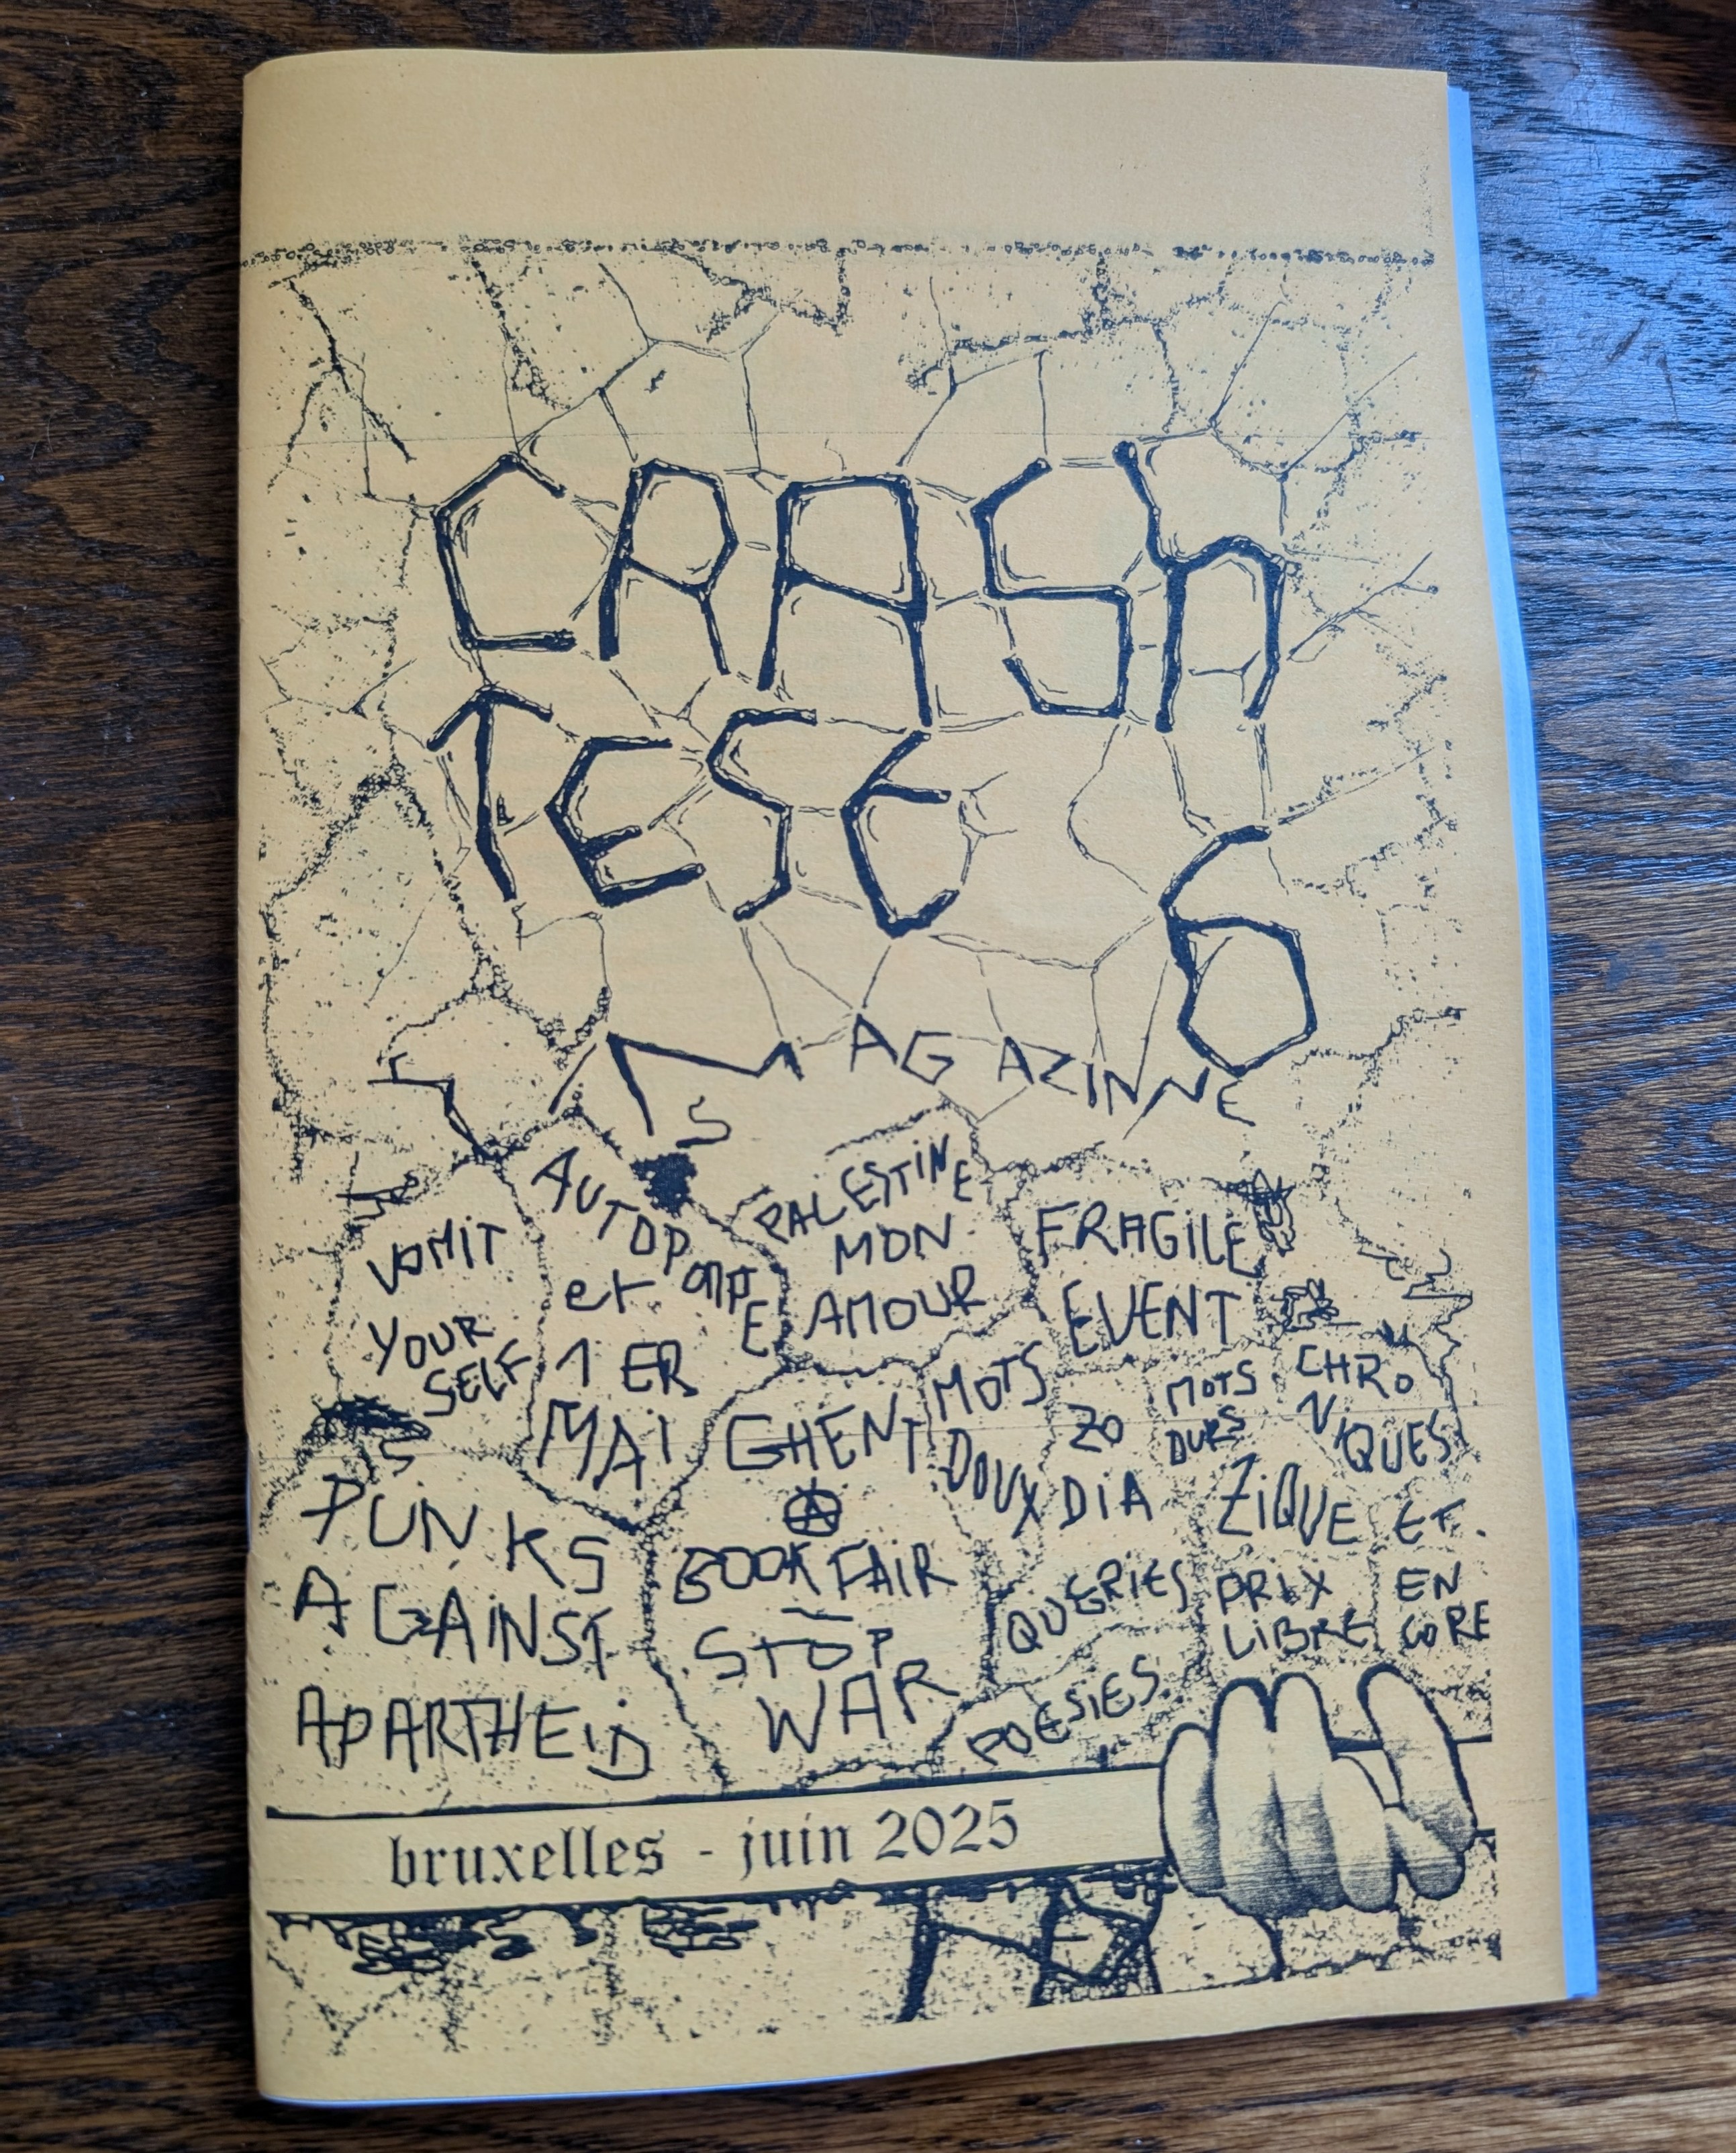 CRASh
TEST
6
MAGAZINNE
VOMIT
YOUR
SELF
AUTOPOMPE
et
1 ER
MAI
PALESTINE
MON
AMOUR
FRAGILE
EVENT
PUNKS
AGAINST
APARTHEID
GHENT
BOOK FAIR
STOP
WAR
MOTS
DOUX
ZO
DIA
QUERIES
POESIES
MOTS
DURS
CHRO
NIQUES
ZIQUE
PRIX
LIBRE
ET
EN
CORE
bruxelles - juin 2025